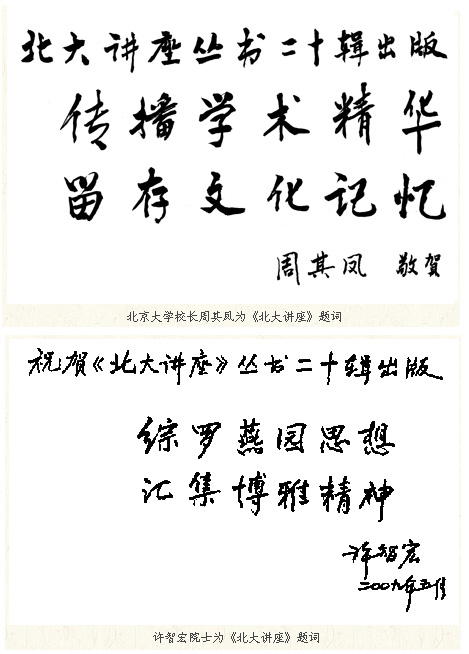 北大讲座丛书二十辑出版
传播学术精华
留存文化记忆
周其凤 敬贺
北京大学校长周其凤为《北大讲座》题词
祝贺《北大讲座》丛书二十辑出版
综罗燕园思想
汇集博雅精神
许智宏
二00九年五月
许智宏院士为《北大讲座》题词